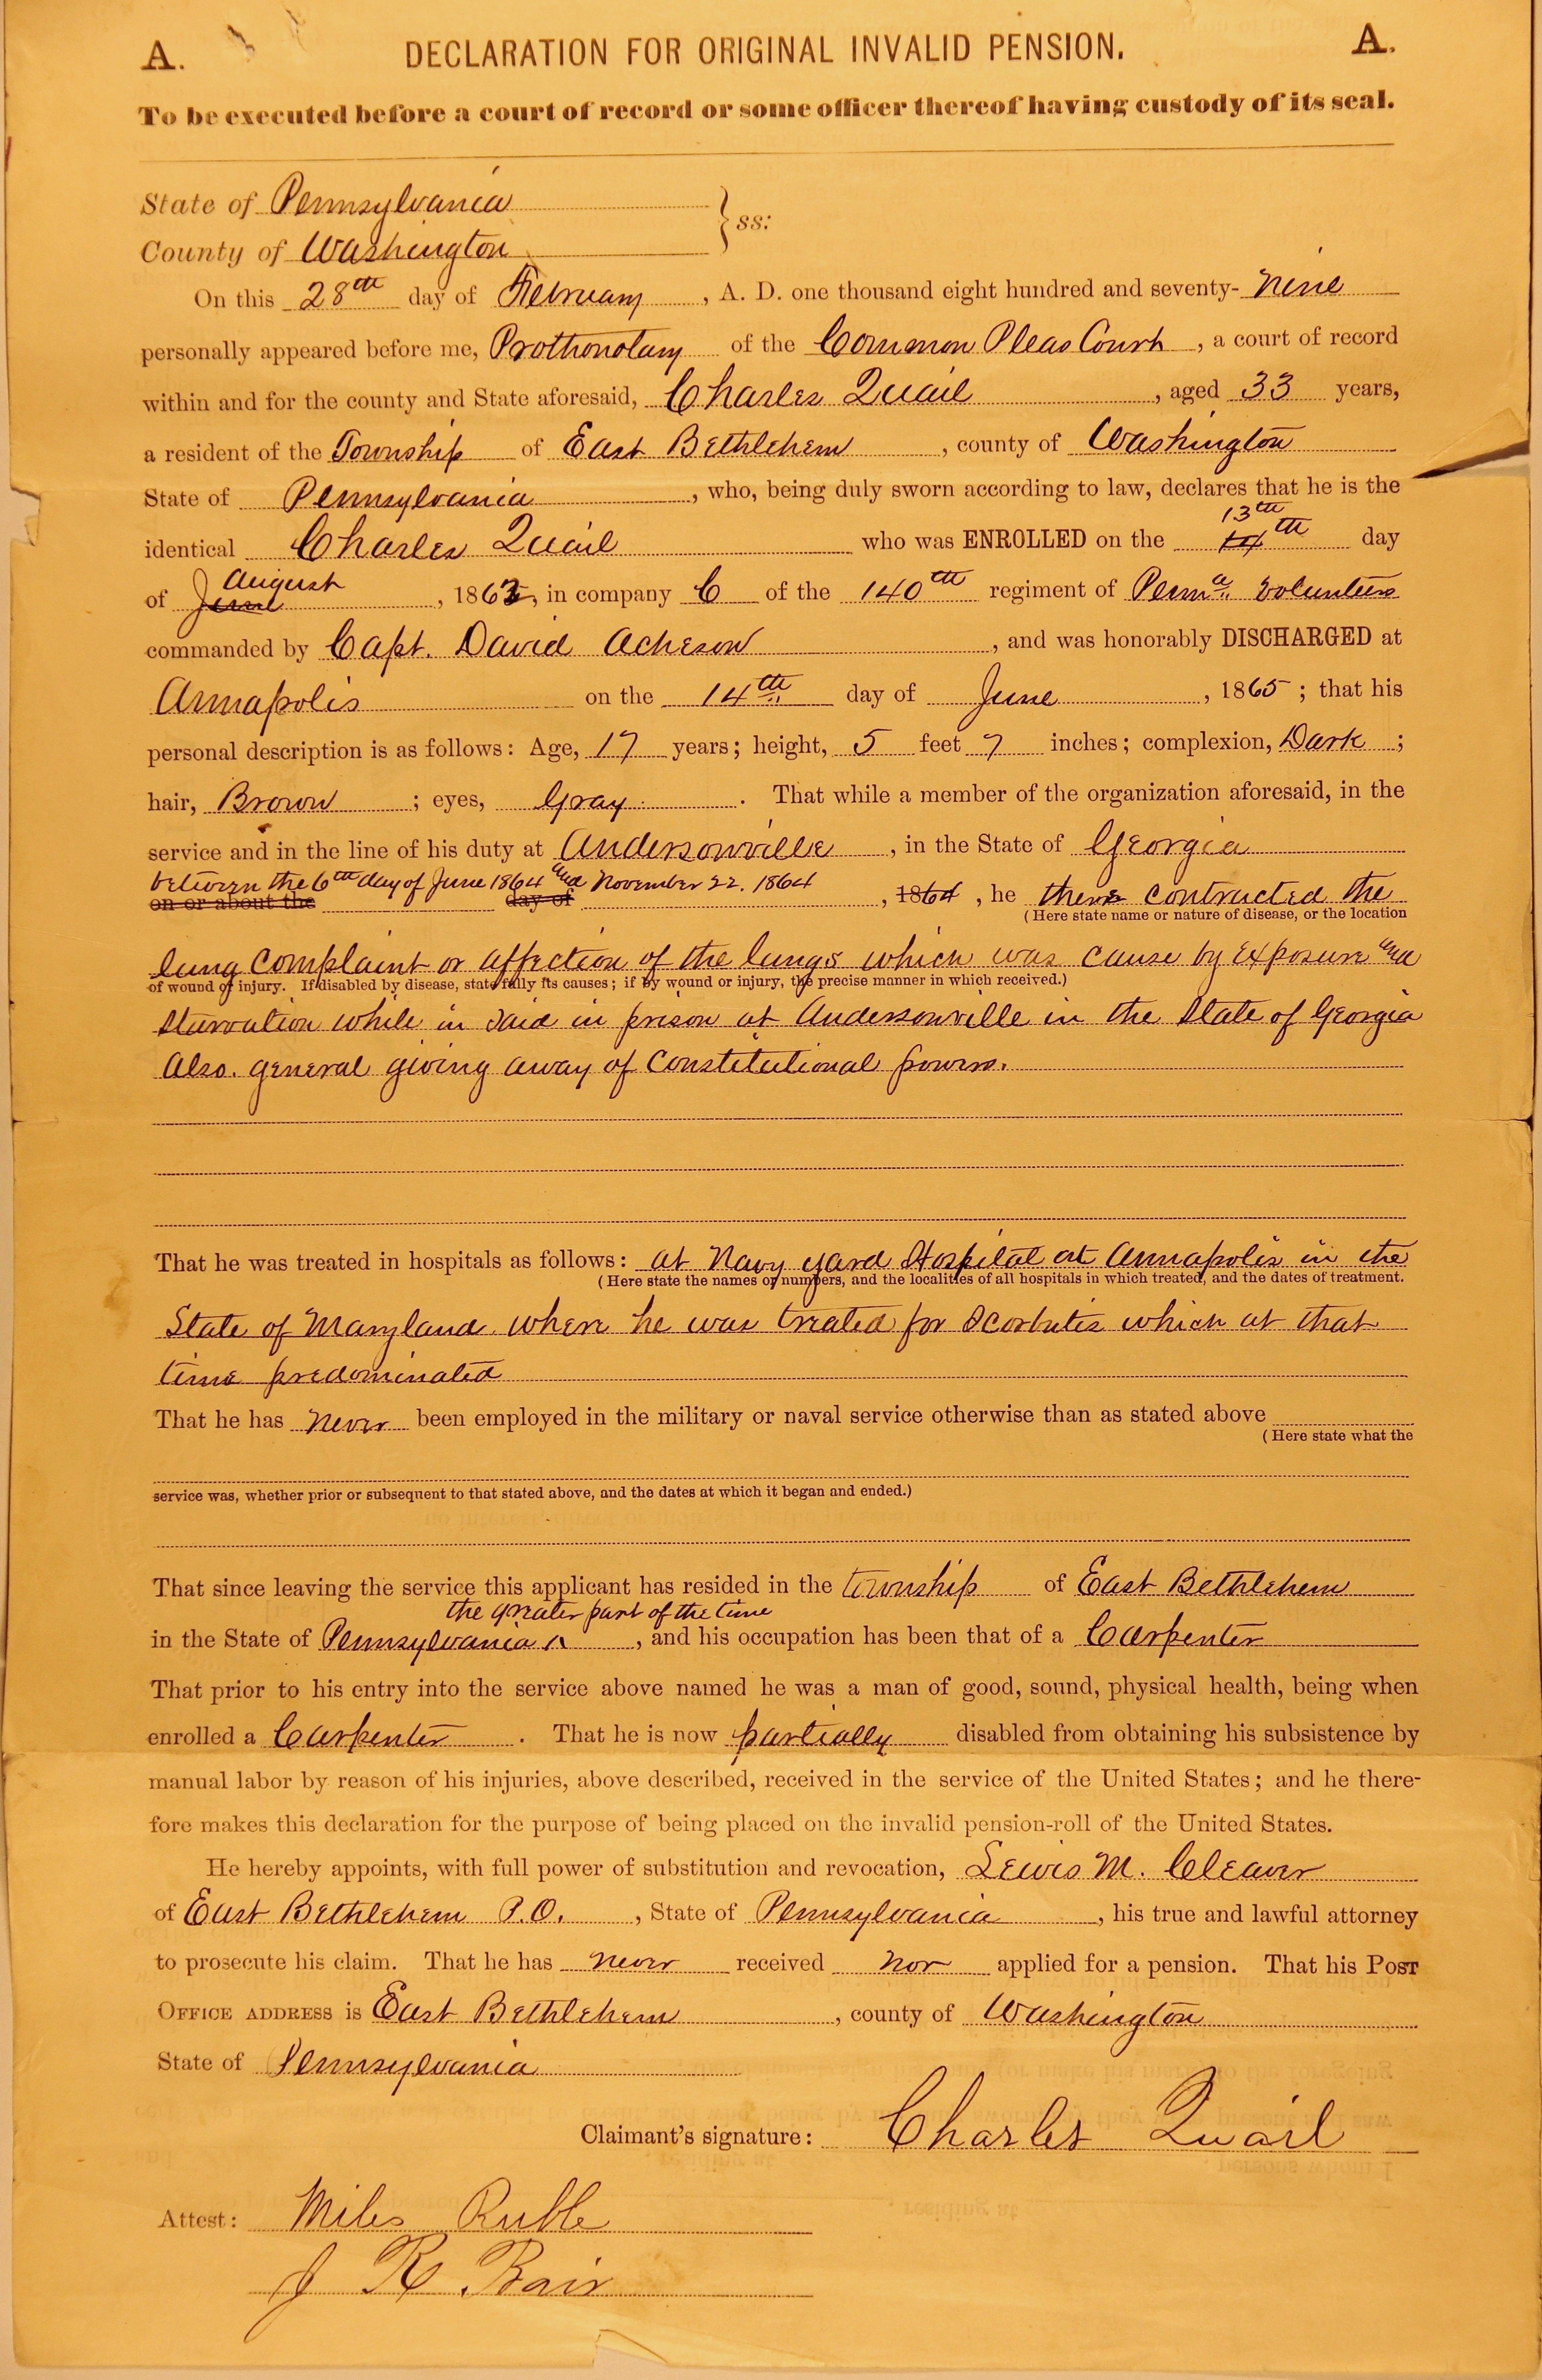 A. DECLARATION FOR ORIGINAL INVALID PENSION. A.
To be executed before a court of record or some officer thereof having custody of its seal.
State of Pennsylvania
County of Washington } ss:
On this 28th day of February, A. D. one thousand eight hundred and seventy-nine
personally appeared before me, Prothonotary of the Common Pleas Court, a court of record
within and for the county and State aforesaid, Charles Quail, aged 33 years,
a resident of the Township of East Bethlehem, county of Washington
State of Pennsylvania, who, being duly sworn according to law, declares that he is the
13th
identical Charles Quail who was ENROLLED on the 14th day
August
of June, 1862, in company C of the 140th regiment of Penna. Volunteers
commanded by Capt. David Acheson, and was honorably DISCHARGED at
Annapolis on the 14th day of June, 1865; that his
personal description is as follows: Age, 17 years; height, 5 feet 7 inches; complexion, Dark;
hair, Brown; eyes, Gray. That while a member of the organization aforesaid, in the
service and in the line of his duty at Andersonville, in the State of Georgia
between the 6th day of June 1864 and November 22. 1864
on or about the day of, 1864, he there contracted the
(Here state name or nature of disease, or the location
lung complaint or affection of the lungs which was cause by exposure and
of wound or injury. If disabled by disease, state fully its causes; if by wound or injury, the precise manner in which received.)
starvation while in said in prison at Andersonville in the State of Georgia
Also. general giving away of Constitutional powers.
That he was treated in hospitals as follows: at Navy yard Hospital at Annapolis in the
(Here state the names or numbers, and the localities of all hospitals in which treated, and the dates of treatment.
State of Maryland where he was treated for Scorbutis which at that
time predominated
That he has never been employed in the military or naval service otherwise than as stated above
(Here state what the
service was, whether prior or subsequent to that stated above, and the dates at which it began and ended.)
That since leaving the service this applicant has resided in the township of East Bethlehem
the greater part of the time
in the State of Pennsylvania ^, and his occupation has been that of a Carpenter
That prior to his entry into the service above named he was a man of good, sound, physical health, being when
enrolled a Carpenter. That he is now partially disabled from obtaining his subsistence by
manual labor by reason of his injuries, above described, received in the service of the United States; and he there-
fore makes this declaration for the purpose of being placed on the invalid pension-roll of the United States.
He hereby appoints, with full power of substitution and revocation, Lewis M. Cleaver
of East Bethlehem P.O., State of Pennsylvania, his true and lawful attorney
to prosecute his claim. That he has never received nor applied for a pension. That his POST
OFFICE ADDRESS is East Bethlehem, county of Washington
State of Pennsylvania
Claimant's signature: Charles Quail
Attest: Miles Ruble
J R. Bair